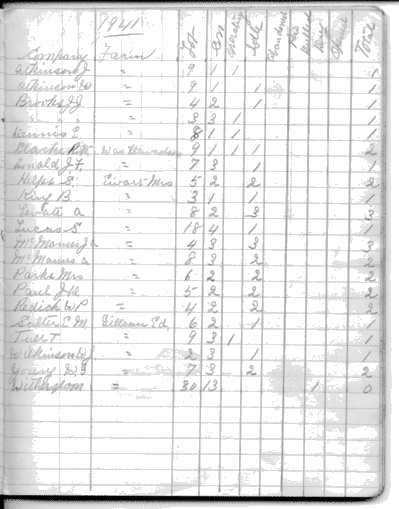 1941
Lot Con Operating Sold Abandoned Dry Total
Company Farm
Atkinson J " 9 1 1 1
Atkinson W " 9 1 1 1
Brooks J J " 4 2 1 1
" 3 3 1 1
Dennis E " 8 1 1 1
Clarke R H Was 9 1 1 1 2
Donald J. F. " 7 3 1 1
Helps S. Ewart Mrs 5 2 2 2
King B. " 3 1 1 1
Levate a " 8 2 3 3
Lucas S " 18 4 1 1
McManus J a " 4 3 3 3
McManus a " 8 3 2 2
Parks Mrs " 6 2 2 2
Paul J H " 5 2 2 2
Redick W P " 4 2 2 2
E M Ed 6 2 1 1
T " 9 3 1 1
Wilkinson W J " 2 3 1 1
" 7 3 2 2
" 30 13 1 0